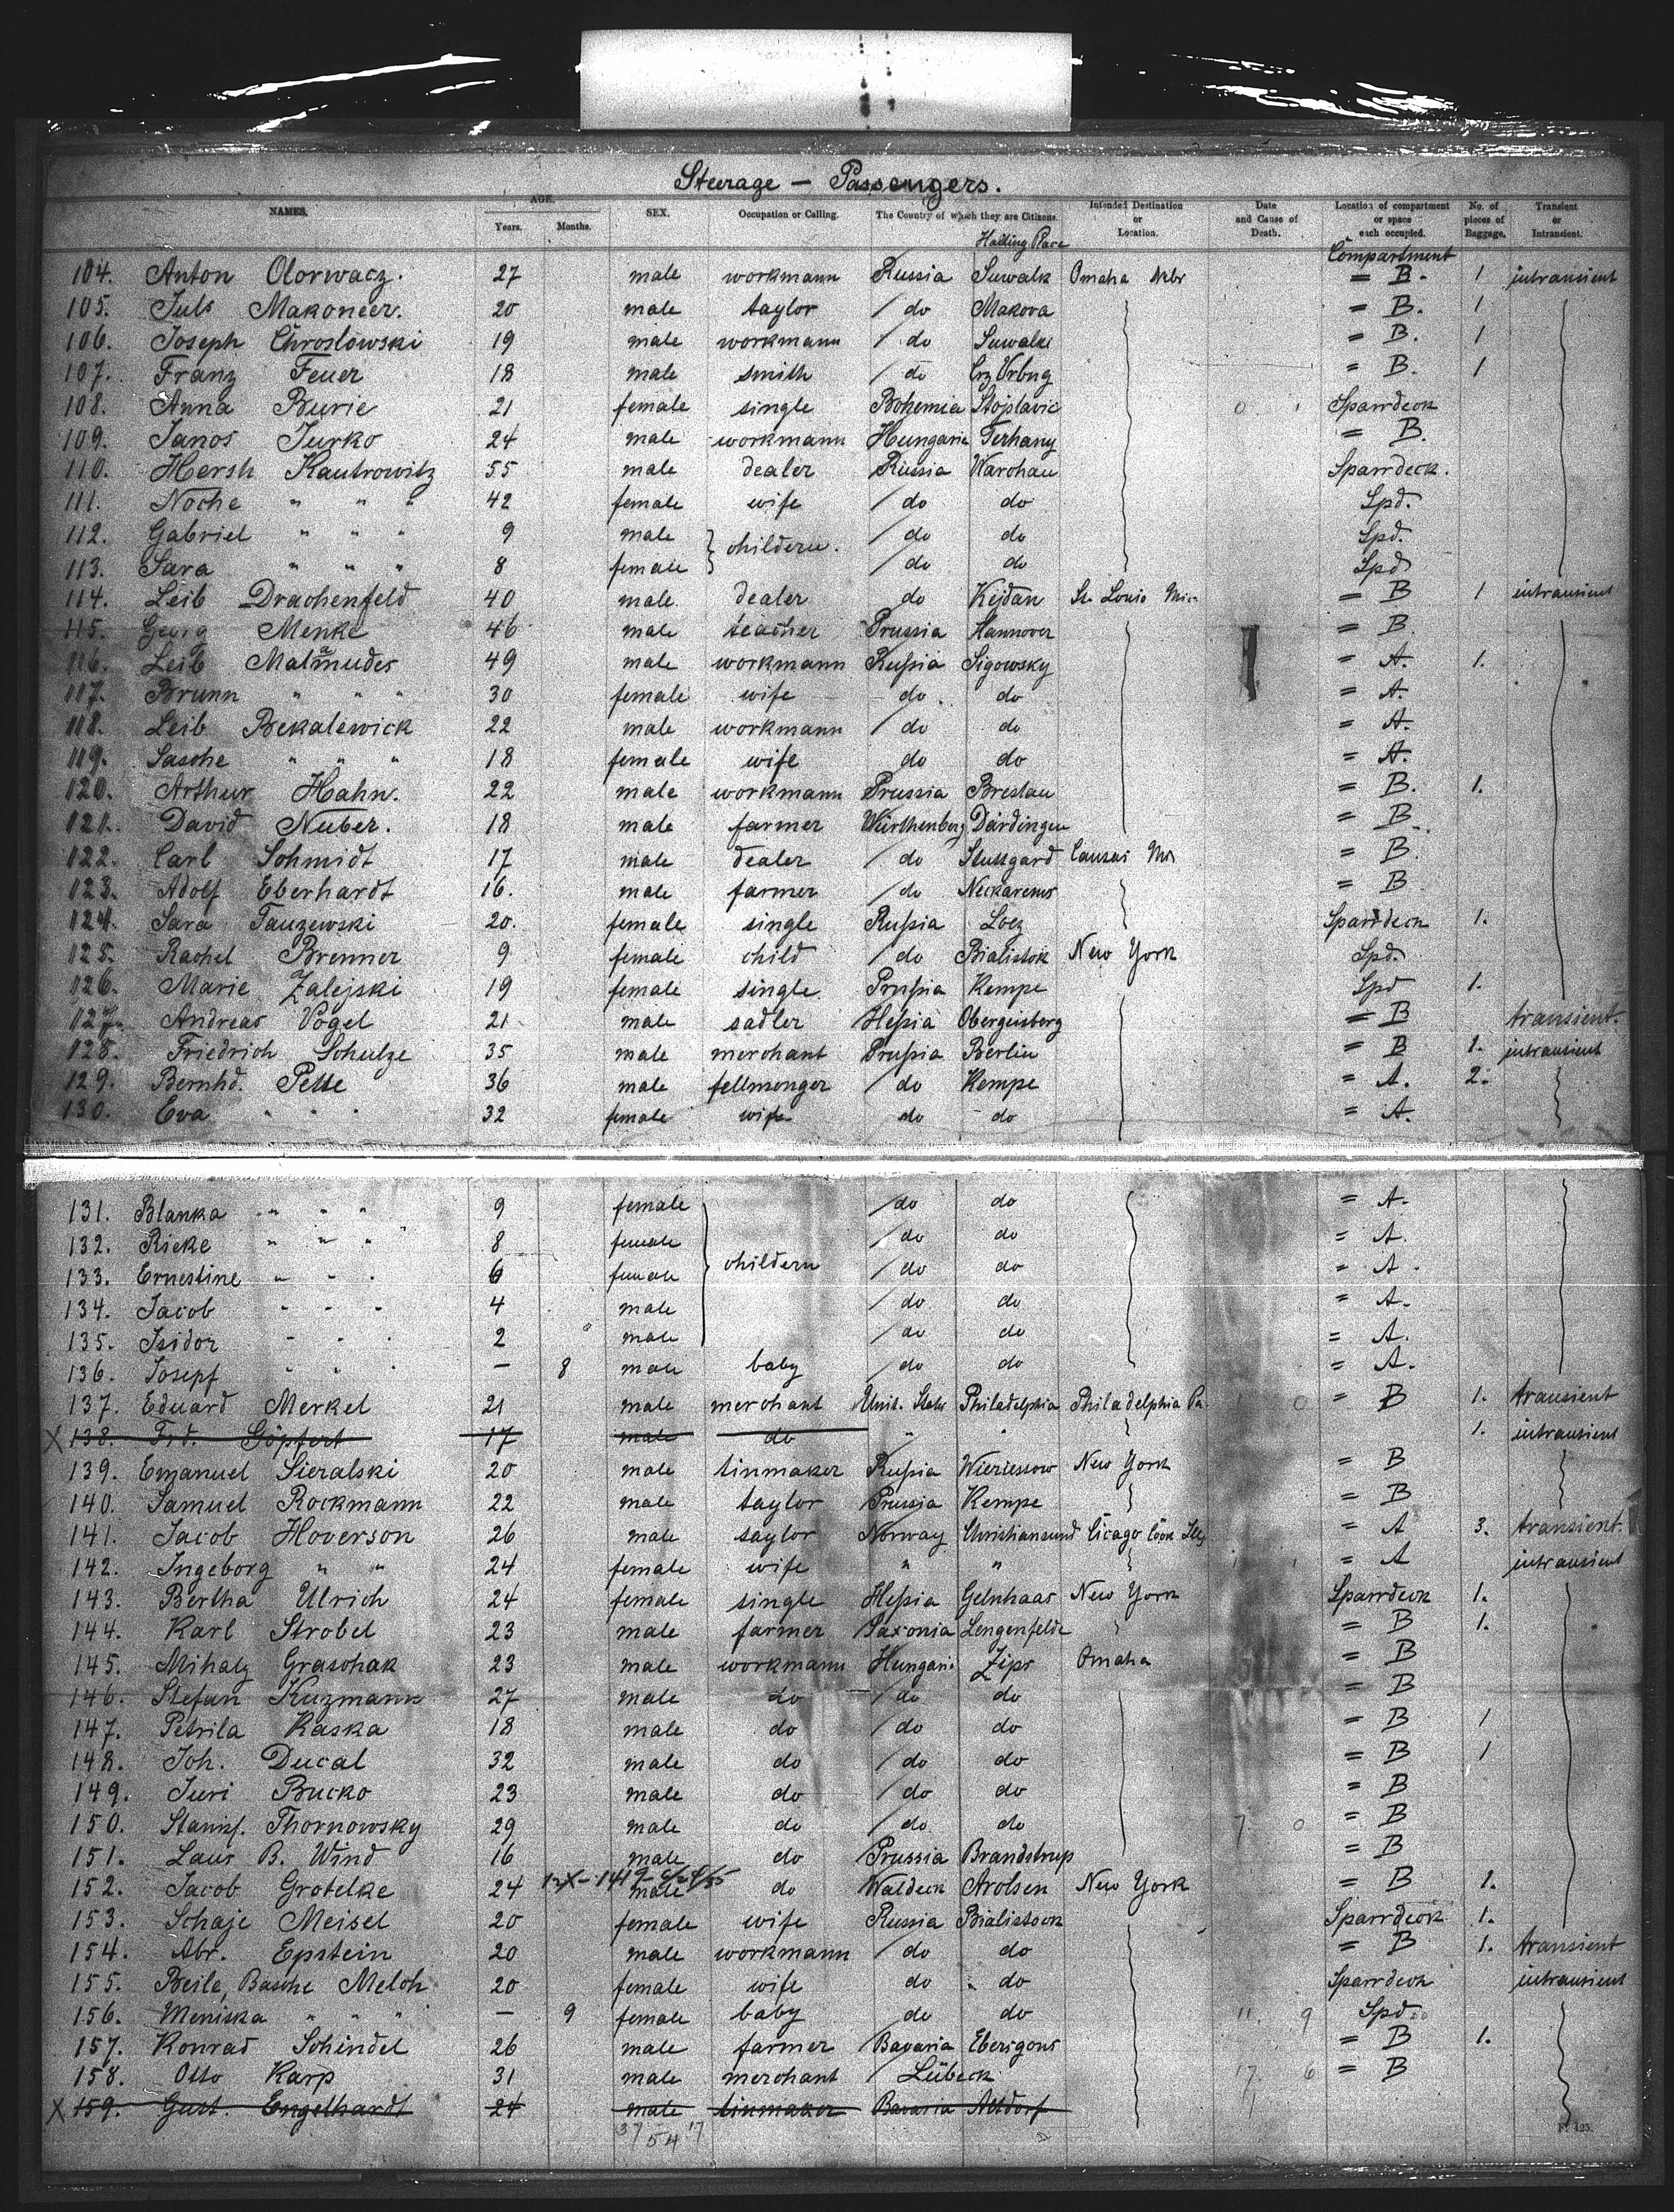 Steerage — Passengers.
NAMES. AGE. Years. Months. SEX. Occupation or Calling. The Country of which they are Citizens. Intended Destination or Location. Date and Cause of Death. Location of compartment or space each occupied. No. of pieces of Baggage. Transient or Intransient.
Hailing Place
Compartment
104. Anton Olorwacz. 27 male workmann Russia Suwalk Omaha Nebr = B. 1 intransient
105. Juls Makoneer. 20 male taylor do Makova = B. 1
106. Joseph Chroslowski 19 male workmann do Suwalki = B. 1
107. Franz Feuer 18 male smith do = B. 1
108. Anna Burie 21 female single Bohemia Stojslavic Sparrdeck
109. Janos Jurko 24 male workmann Hungarie Terhany = B.
110. Hersh Kautrowitz 55 male dealer Russia Warchau Sparrdeck.
111. Noche " " " 42 female wife do do Spd.
112. Gabriel " " " 9 male childern. do do Spd.
113. Sara " " " 8 female do do Spd
114. Leib Drachenfeld 40 male dealer do Kejdan St. Louis = B 1 intransient
115. Georg Menke 46 male teacher Prussia Hannover = B.
116. Leib Malamudes 49 male workmann Russia Sigowsky = A. 1.
117. Brunn " " " 30 female wife do do = A.
118. Leib Bekalewick 22 male workmann do do = A.
119. Sasche " " " 18 female wife do do = A.
120. Arthur Hahn. 22 male workmann Prussia Breslau = B. 1.
121. David Nuber. 18 male farmer Würthenberg Därdingen = B.
122. Carl Schmidt 17 male dealer do Stuttgard Cansas = B.
123. Adolf Eberhardt 16. male farmer do Neckarems = B
124. Sara Tauzewski 20. female single Russia Loez Sparrdeck 1.
125. Rachel Brenner 9 female child do Bialistok New York Spd.
126. Marie Zalejski 19 female single Prussia Kempe Spd 1.
127. Andreas Vogel 21 male sadler Hessia Obergeisberg = B transient.
128. Friedrich Schulze 35 male merchant Prussia Berlin = B 1. intransient
129. Bernhd. Pette 36 male fellmonger do Kempe = A. 2.
130. Eva " " " 32 female wife do do = A.
131. Blanka " " " 9 female do do = A.
132. Rieke " " " 8 female do do = A.
133. Ernestine " " " 6 female childern do do = A.
134. Jacob " " " 4 male do do = A.
135. Isidor " " " 2 male do do = A.
136. Josepf " " " — 8 male baby do do = A.
137. Eduard Merkel 21 male merchant Unit. States Philadelphia Philadelphia Pa. = B 1. transient
X 138. Frd. Göpfert 17 male do " " 1. intransient
139. Emanuel Sieralski 20 male tinmaker Russia Wieruessow New York = B
140. Samuel Rockmann 22 male taylor Prussia Kempe = B
141. Jacob Hoverson 26 male taylor Norway Christiansund Cicago Cook Ills = A 3. transient.
142. Ingeborg " " 24 female wife " " = A intransient
143. Bertha Ulrich 24 female single Hessia Gelnhaas New York Sparrdeck 1.
144. Karl Strobel 23 male farmer Saxonia Lengenfelde = B 1.
145. Mihaly Graschak 23 male workmann Hungarie Zips Omaha = B
146. Stefan Kuzmann 27 male do do do = B
147. Petrila Kaska 18 male do do do = B 1
148. Joh. Ducal 32 male do do do = B 1
149. Juri Bucko 23 male do do do = B
150. Stanisl. Thornowsky 29 male do do do = B
151. Laus B. Wind 16 male do Prussia Brandstrup = B
152. Jacob Grotelke 24 male do Waldeck Arolsen New York = B 1.
153. Schaje Meisel 20 female wife Russia Bialistock Sparrdeck 1.
154. Abr. Epstein 20 male workmann do do = B 1. transient
155. Beile, Basche Meloh 20 female wife do do Sparrdeck intransient
156. Meniska " " " — 9 female baby do do Spd.
157. Konrad Schindel 26 male farmer Bavaria Eberigons = B 1.
158. Otto Karp 31 male merchant Lübeck = B
X 159. Gust. Engelhardt 24 male tinmaker Bavaria Altdorf
37 54 17